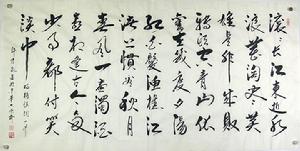 滚滚长江东逝水
浪花淘尽英
雄是非成败
转头空青山依
旧在几度夕阳
红白发渔樵江
渚上惯看秋月
春风一壶浊酒
喜相逢古今多
少事都付笑
谈中